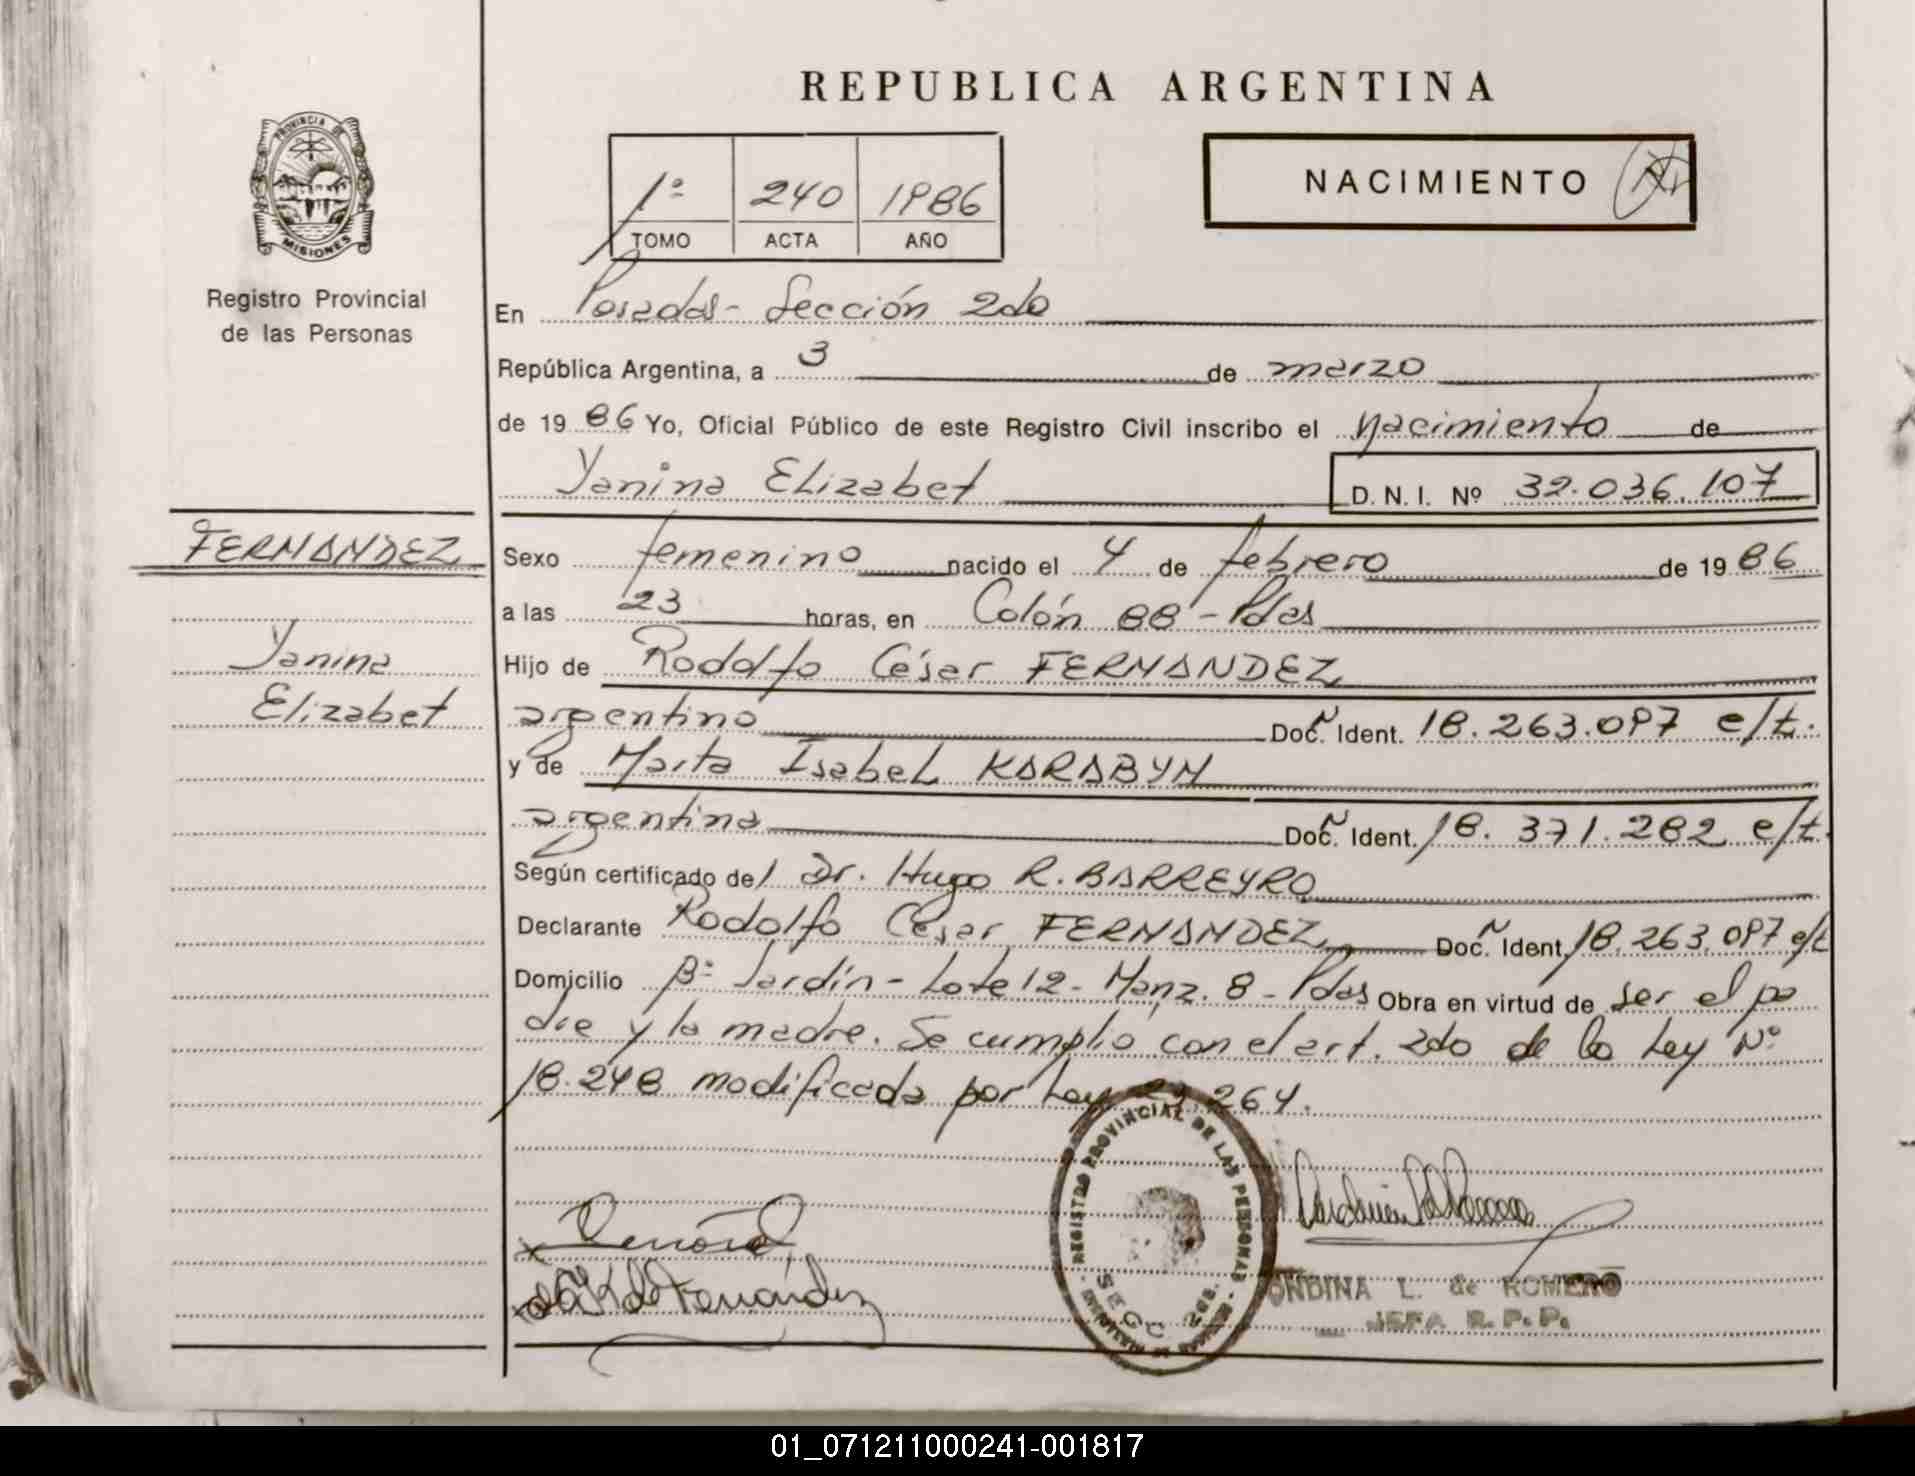 REPUBLICA ARGENTINA
PROVINCIA DE
MISIONES
Registro Provincial
de las Personas
1º 240 1986
TOMO ACTA AÑO
NACIMIENTO
En Posadas - Sección 2da
República Argentina, a 3 de marzo
de 1986 Yo, Oficial Público de este Registro Civil inscribo el nacimiento de
Yanina Elizabet D. N. I. Nº 32.036.107
FERNANDEZ
Yanina
Elizabet
Sexo femenino nacido el 4 de febrero de 1986
a las 23 horas, en Colón 88 - Pdas
Hijo de Rodolfo César FERNANDEZ
argentino Doc. Ident. 18.263.097 e/t.
y de Marta Isabel KARABYN
argentina Doc. Ident. 18.371.282 e/t.
Según certificado del Dr. Hugo R. BARREYRO
Declarante Rodolfo César FERNANDEZ Doc. Ident. 18.263.097 e/t
Domicilio Bº Jardín - Lote 12 - Manz. 8 - Pdas Obra en virtud de ser el pa
dre y la madre. Se cumplió con el art. 2do de la Ley Nº
18.248 modificada por Ley 23.264.
REGISTRO PROVINCIAL DE LAS PERSONAS
ONDINA L. de ROMERO
JEFA R. P. P.
01_071211000241-001817